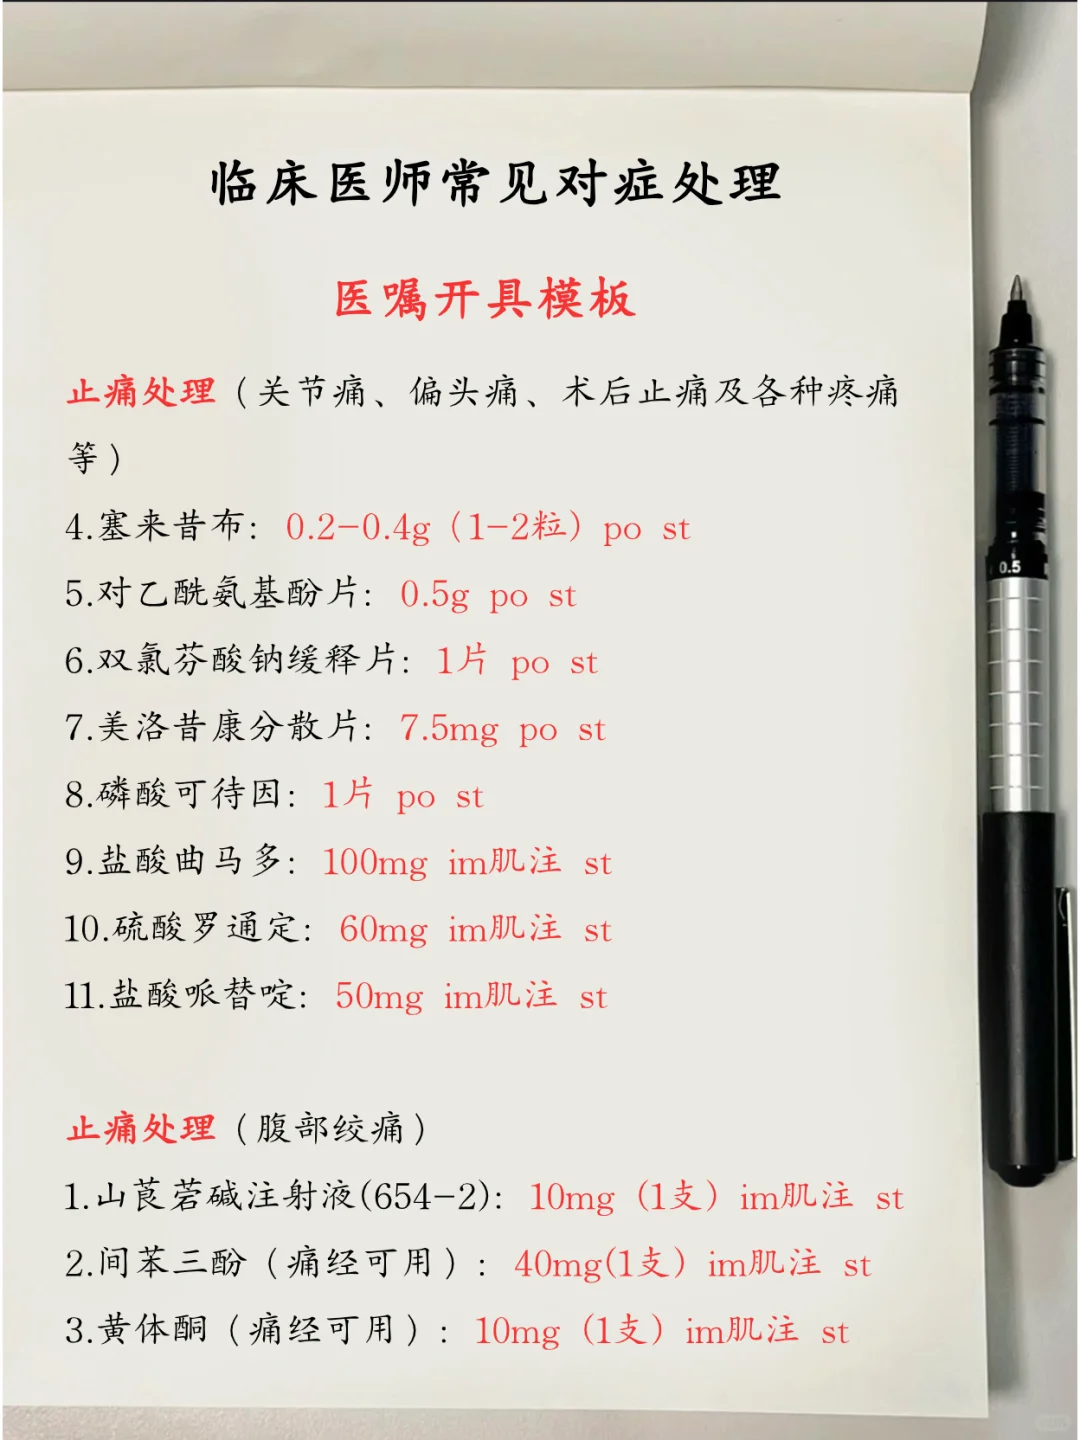 临床医师常见对症处理
医嘱开具模板
止痛处理（关节痛、偏头痛、术后止痛及各种疼痛
等）
4.塞来昔布：0.2-0.4g（1-2粒）po st
5.对乙酰氨基酚片：0.5g po st
6.双氯芬酸钠缓释片：1片 po st
7.美洛昔康分散片：7.5mg po st
8.磷酸可待因：1片 po st
9.盐酸曲马多：100mg im肌注 st
10.硫酸罗通定：60mg im肌注 st
11.盐酸哌替啶：50mg im肌注 st
止痛处理（腹部绞痛）
1.山莨菪碱注射液(654-2)：10mg（1支）im肌注 st
2.间苯三酚（痛经可用）：40mg(1支）im肌注 st
3.黄体酮（痛经可用）：10mg（1支）im肌注 st
0.5